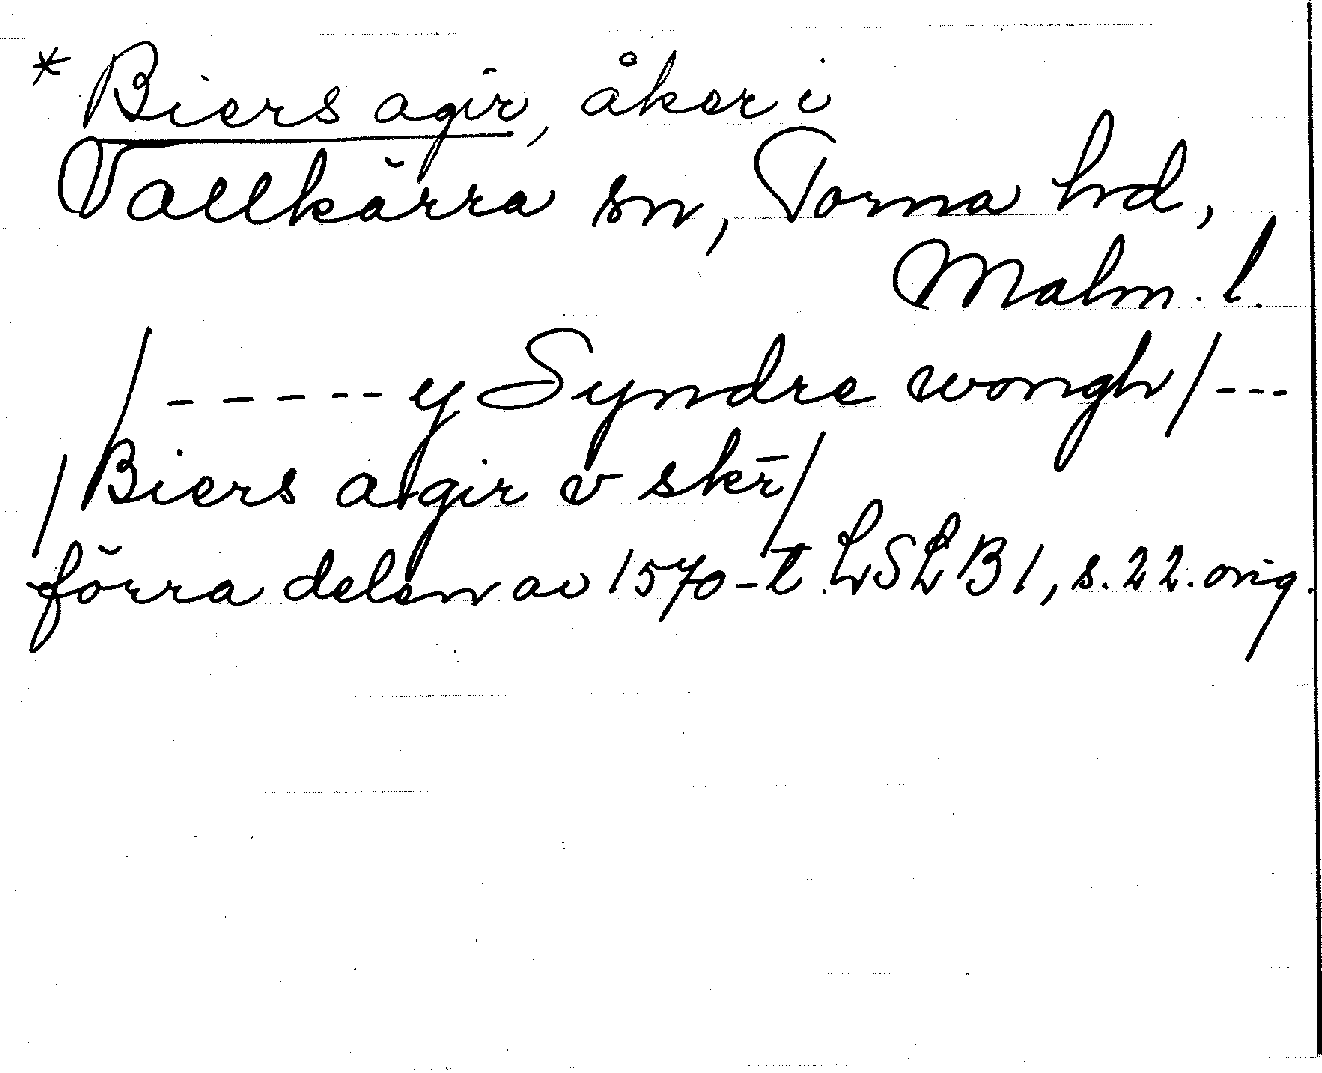 * Biers agir, åker i
Vallkärra sn, Torna hd,
Malm. l.
/ ----- y Syndre wongh / ---
/ Biers agir v skr̄ /
förra delen av 1570-t. LSLB 1, s. 22. orig.